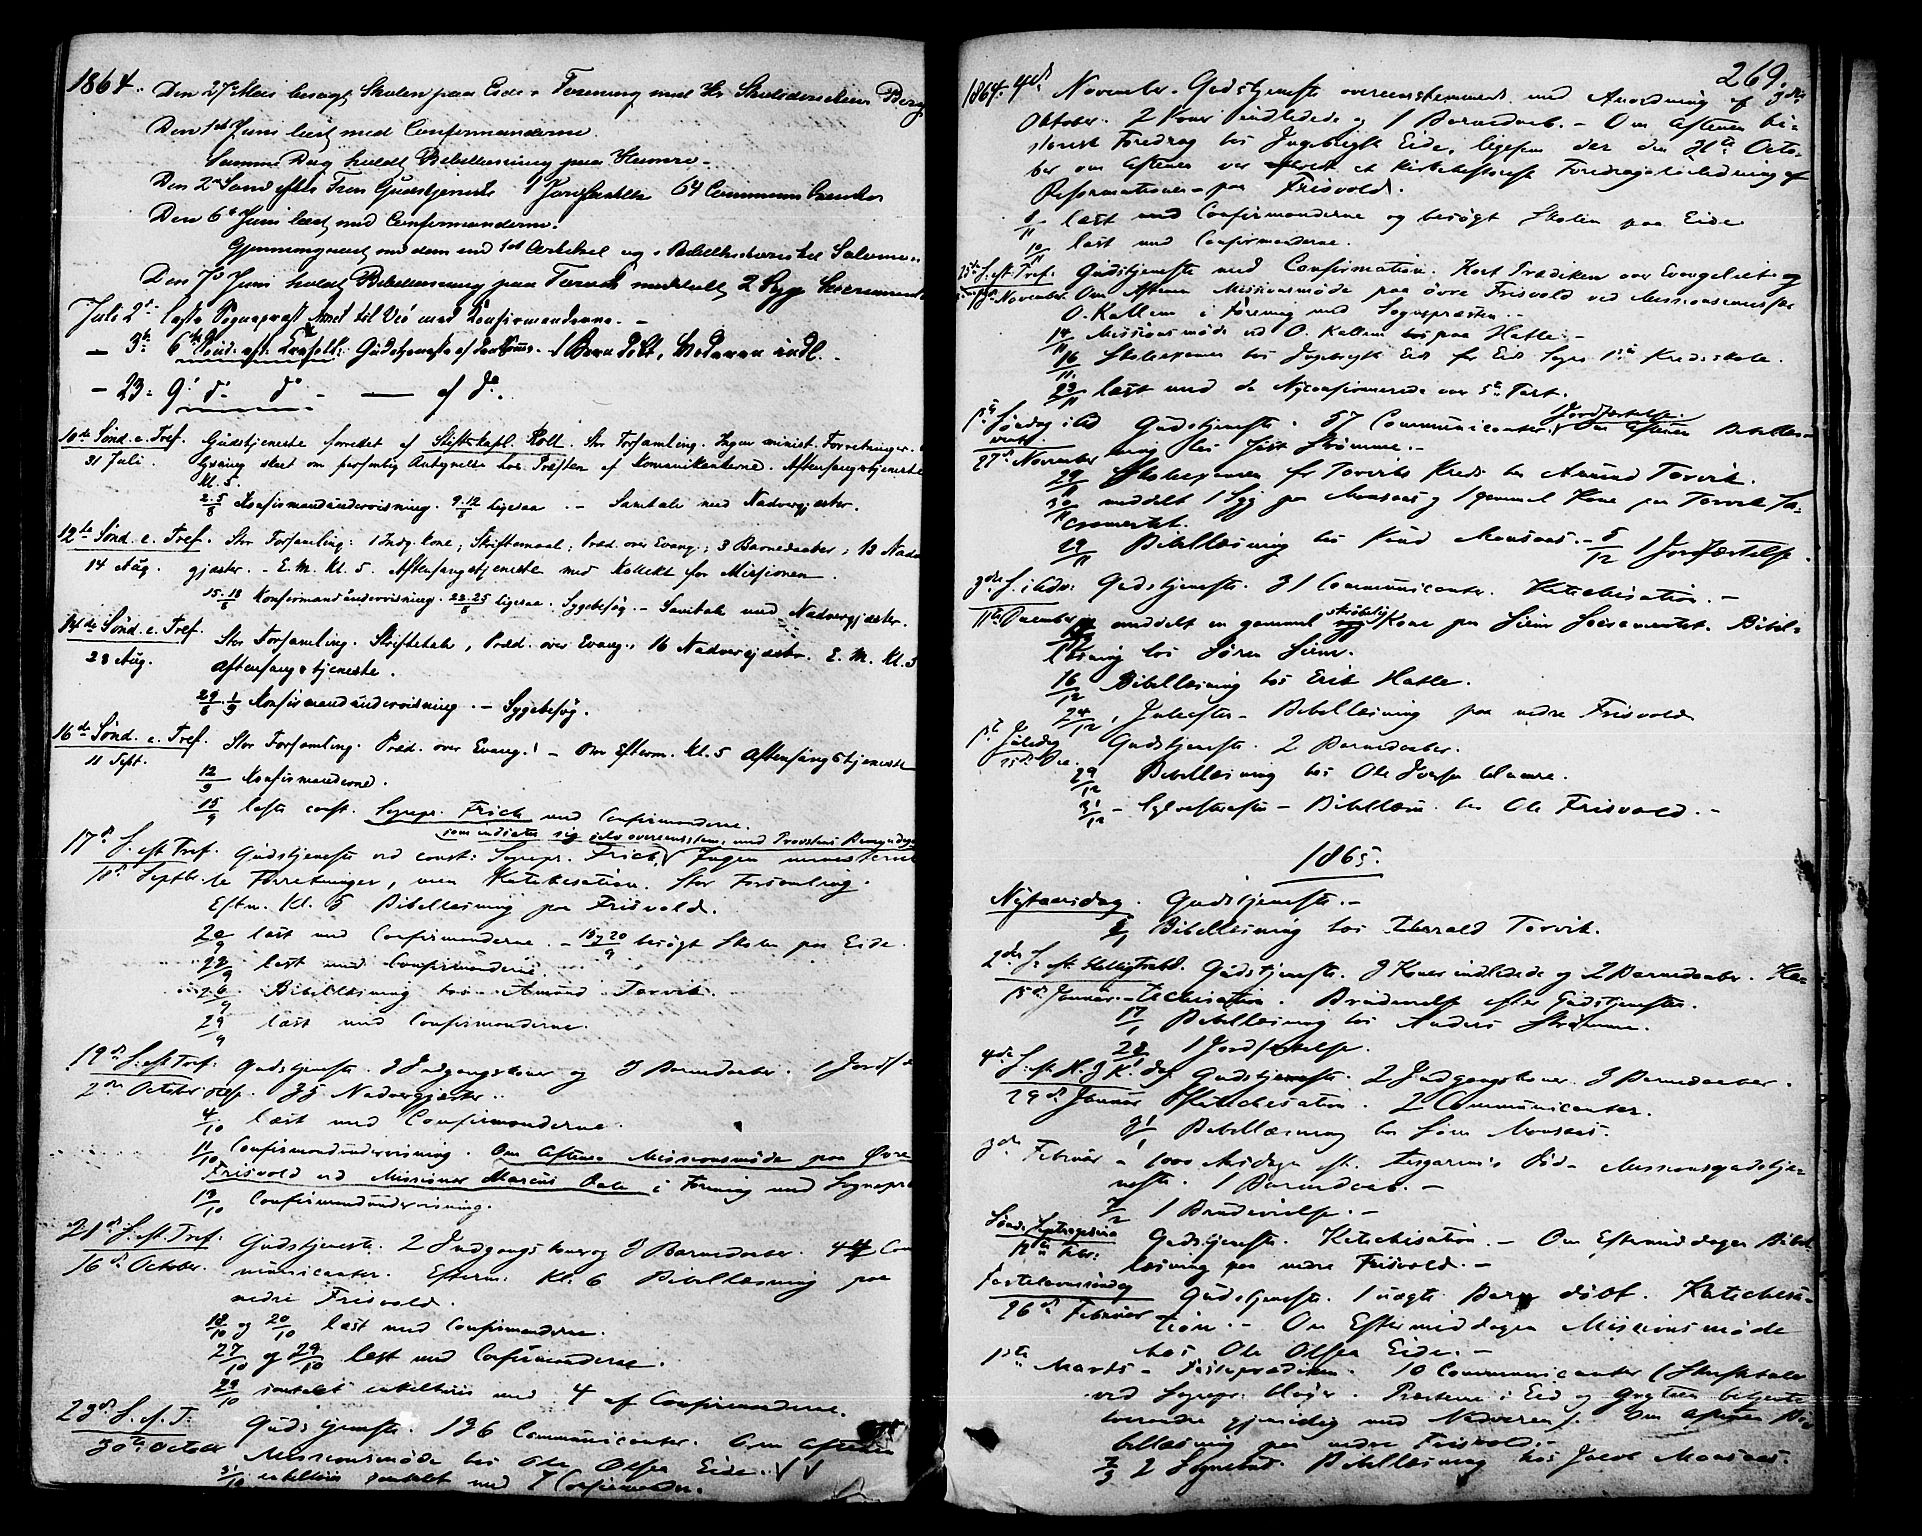 1864. Den 27 Mai besøgt Skolen paa Eide i Forening med Hr Skoledirecteur Berg
Den 1st Juni læst med Confirmanderne
Samme Dag holdt Bibellæsning paa
Den 2n Sønd efter Tref Gudstjeneste 1 64 Communicanter
Den 6te Juni læst med Confirmanderne.
Gjennemgaaet med dem med 1st Artikel og Bibelhistorien til Salomo.
Den 7d Juni holdt Bibellæsning paa Torvik meddelt 2 Syge Sacramentet
Juli 2d læste Sogneprest til Veø med Konfirmanderne. –
– 3die 6te Sønd. eft. Trefold: Gudstjeneste af 1 Barn Døbt, indl.
– 23: 9d do do — af do.
10de Sønd. e. Tref. Gudstjeneste forrettet af Stiftskapl. Kolt. Stor Forsamling. Ingen minist. Forretninger.
31 Juli. lysning skeet om personlig Anmeldelse hos Præsten af Komunikanterne. Aftensangstjeneste
kl. 5.
2.5/8 Konfirmandundervisning. 9.12/8 ligesaa. – Samtale med Nadvergjæster.
12te Sønd. e. Tref. Stor Forsamling: 1 Indg. Kone; Skriftemaal; Præd. over Evang.; 3 Barnedaaber; 13 Nad
14 Aug. gjæster. – E.M. kl. 5. Aftensangstjeneste med Kollekt for Missionen.
15.18/8 Konfirmandundervisning. 22.25/8 ligesaa. Sygebesøg. – Samtale med Nadvergjæster.
14de Sønd. e. Tref. Stor Forsamling. Skriftetale, Præd. over Evang., 16 Nadvergjæster. E.M. kl. 5
28 Aug. Aftensangstjeneste.
29/8. 1/9 Konfirmandundervisning. – Sygebesøg.
16de Sønd. e. Tref. Stor Forsamling. Præd. over Evang. – Om Efterm. kl. 5 Aftensangstjeneste
11 Sept.
12/9 Konfirmanderne.
15/9 læste const. Sognepr. Frich med Confirmanderne.
som indsatte sig selv overensstem. med Provstens Bemyndigelse
17d S. eft Tref. Gudstjeneste ved const: Sognepr. Frich. Ingen ministeriel
18d Septbr. le Forretninger, men Katekisation. Stor Forsamling.
Eftm. kl. 5 Bibellæsning paa Frisvold.
20/9 læst med Confirmanderne. – 15 og 20/9 besøgt Skolen paa Eide.
22/9 læst med Confirmanderne.
26/9 Bibellæsning hos Amund Torvik.
29/9 læst med Confirmanderne.
19d S. eft Tref: Gudstjeneste. 3 Indgangskoner og 3 Barnedaaber. 1 Jordfæ
2den October telse. 35 Nadvergjæster.
4/10 læst med Confirmanderne.
11/10 Confirmandundervisning. Om Aftenen Missionsmøde paa Øvre
Frisvold ved Missionær Marcus Dale i Forening med Sognepr.
13/10 Confirmandundervisning.
21d S. eft. Tref. Gudstjeneste. 2 Indgangskoner og 3 Barnedaaber. 44 Com
16d October. municanter. Efterm. kl. 6 Bibellæsning paa
nedre Frisvold.
18/10 og 20/10 læst med Confirmanderne.
27/10 og 29/10 læst med Confirmanderne.
29/10 samtalt enkeltvis med 4 af Confirmanderne.
23d S. e. T. Gudstjeneste. 136 Communicanter. Om Aftenen
30te October Missionsmøde hos Ole Olsen Eide.
31/10 enkeltvis samtalt med 7 Confirmander.
269.
1864. 4de November. Gudstjeneste overensstemmende med Anordning af 3die
Oktober. 2 Koner indledede og 1 Barnedaab. – Om Aftenen hi-
storisk Foredrag hos Ingebrigt Eide, ligesom der den 31te Octo-
ber om Aftenen var et kirkehistorisk Foredrag i Anledning af
Reformationen paa Frisvold.
8/11 læst med Confirmanderne og besøgt Skolen paa Eide
10/11 læst med Confirmanderne.
25de S. eft Tref. Gudstjeneste med Confirmation. Kort Prædiken over Evangeliet og
13d November. Om Aftenen Missionsmøde paa øvre Frisvold ved Missionsemissær
O. Kallem i Forening med Sognepræsten.
14/11 Missionsmøde ved O. Kallem hos paa Hatle. –
16/11 Skoleexamen hos Ingebrigt Eid for Eid Sogns 1ste Kredsskole.
23/11 læst med de Nyconfirmerede over 5te Part.
1ste Søndag i Ad Gudstjeneste. 57 Communicanter. 1 Jordfæstelse. Om Aftenen Bibellæs-
vent. 27de November ning hos Jett Strømme. –
29/11 Skoleexamen for Torviks Kreds hos Amund Torvik.
30/11 meddelt 1 Syg paa Monsaas og 1 gammel Kone paa Torvik Sa-
cramentet.
29/11 Bibellæsning hos Knud Monsaas. – 5/12 1 Jordfæstelse.
3die S. i Adv: Gudstjeneste. 31 Communicanter. Katechisation. –
11te December meddelt en gammel skrøbelig Kone paa Siem Sacramentet. Bibel-
læsning hos Søren Siem.
16/12 Bibellæsning hos Erik Hatle.
24/12, Juleaften – Bibellæsning paa nedre Frisvold
1ste Juledag Gudstjeneste. 2 Barnedaaber.
25d Dec.
29/12 Bibellæsning hos Ole Iversen Hamre.
31/12 – Sylvesteraften – Bibellæsn. hos Ole Frisvold. –
1865.
Nytaarsdag. Gudstjeneste. –
8/1 Bibellæsning hos Harald Torvik.
2den S. eft. Helligtrekd. Gudstjeneste. 3 Koner indledede og 2 Barnedaaber. Ka-
15d Januar. – techisation. Brudevielse efter Gudstjenesten.
17/1 Bibellæsning hos Anders Strømme.
28/1 1 Jordfæstelse.
4de S. eft. H. 3 K. dg. Gudstjeneste. 2 Indgangskoner. 3 Barnedaaber.
29d Januar Katechisation. 2 Communicanter.
31/1 Bibellæsning hos Siem Monsaas.
3die Februar – 1000 Aarsdagen eft. Ansgarius Død – Missionsgudstje-
neste. 1 Barnedaab. –
7/2 1 Brudevielse. –
Sønd. Septuagesima Gudstjeneste. Katechisation. – Om Eftermiddagen Bibel
12te Febr. læsning paa nedre Frisvold. –
Fastelavnssøndag Gudstjeneste. 1 uægte Barn døbt. Katechisa-
26d Februar tion. – Om Eftermiddagen Missionsmøde
hos Ole Olsen Eide. –
1ste Marts – Fasteprædiken. 10 Communicanter (Skriftetale
ved Sognepr. Præsterne i Eid og betjente
hverandre gjensidig med Nadveren). Om Aftenen Bi-
bellæsning paa nedre Frisvold. –
7/3 2 Sognebud. Bibellæsning hos Jacob Monsaas.